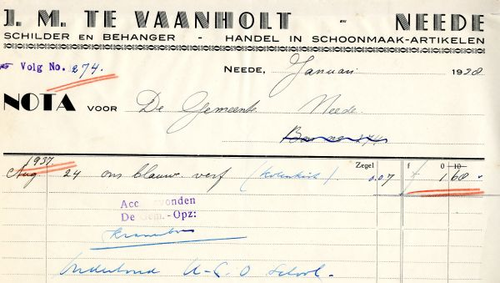 J. M. TE VAANHOLT - NEEDE
SCHILDER EN BEHANGER - HANDEL IN SCHOONMAAK-ARTIKELEN
Volg No. 274.
NEEDE, Januari 1938
NOTA VOOR De Gemeente Neede.
1937
Zegel f
Aug 24 ons blauwe verf 0.07 f 1.68
Acc. vonden
De Gem.-Opz:
Onderhoud U-L-O School.